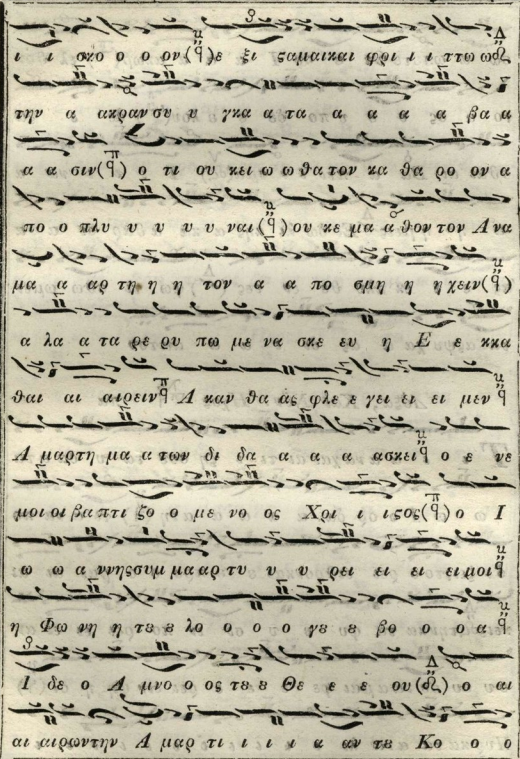 ι ι σκο ο ο ον(ϥ)ε ξι ϛαμαικαι φρι ι ι ττω ω
την α ακραν συ υ γκα α τα α α α α βα α
α α σιν(ϥ) ο τι ου κει ω ω θα τον κα θα ρο ον α
πο ο πλυ υ υ υ υ ναι(ϥ)ου κε μα α θον τον Α να
μα α αρ τη η η τον α α πο σμη η η χειν(ϥ)
α λα α τα ρε ρυ πω με να σκε ευ η Ε ε κκα
θαι αι αιρεινϥ Α καν θα ας φλε ε γει ει ει μενϥ
Α μαρτη μα α των δι δα α α α ασκειϥ ο ε νε
μοι οι βα πτι ζο ο με νο ος Χρι ι ιϛος(ϥ) ο Ι
ω ω α ννηςσυμ μα αρ τυ υ υ ρει ει ει ει μοιϥ
η Φω νη η τȣ ȣ λο ο ο ο γȣ ȣ βο ο ο αϥ
Ι δε ο Α μνο ο ος τȣ ȣ Θε ε ε ου ο αι
αι αιρωντην Α μαρ τι ι ι ι α αν τȣ Κο ο ο